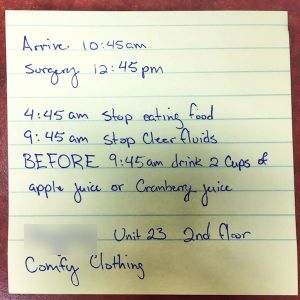 Arrive 10:45am
Surgery 12:45pm
4:45am Stop eating food
9:45am Stop Clear fluids
BEFORE 9:45am drink 2 Cups of
apple juice or Cranberry juice
Unit 23 2nd floor
Comfy Clothing